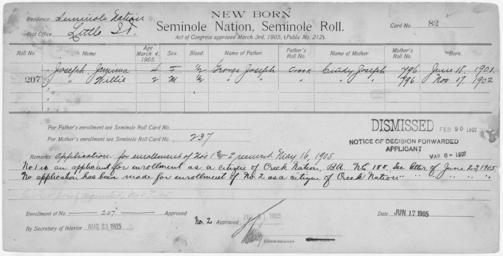 NEW BORN
Residence Seminole Nation
Seminole Nation, Seminole Roll.
Card No. 82
Post Office. Little I.T.
Act of Congress approved March 3rd, 1905, (Public No. 212).
Roll No. Name Age March 4, 1905. Sex. Blood. Name of Father. Father's Roll No. Name of Mother. Mother's Roll No. Born.
Joseph Jemima 4 F George Joseph Creek Cindy Joseph 796 June 18, 1901
207 " Willie 2 M " " " " " 796 Nov 17, 1902
For Father's enrollment see Seminole Roll Card No.
For Mother's enrollment see Seminole Roll Card No. 237
DISMISSED FEB 20
NOTICE OF DECISION FORWARDED
APPLICANT
Remarks: Application for enrollment of Nos 1 & 2 May 16, 1905
No 1 is an applicant for enrollment as a citizen of Creek Nation, BA. NC 188. See letter of June 23 1905
No application has been made for enrollment of No. 2 as a citizen of Creek Nation " " " "
Enrollment of No. 207 Approved
No. 2 Approved 1905
Date JUN 17 1905
By Secretary of Interior AUG 23 1905
Commissioner